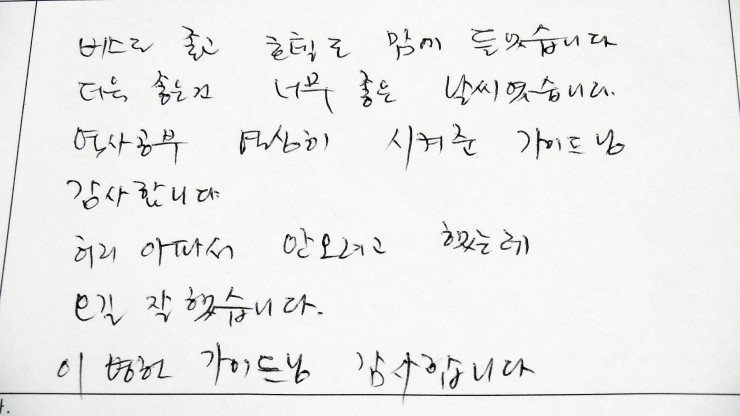 버스도 좋고 호텔도 맘에 들었습니다
더욱 좋은건 너무 좋은 날씨였습니다.
역사공부 열심히 시켜준 가이드님
감사합니다
허리 아파서 안오려고 했는데
오길 잘했습니다.
이 병헌 가이드님 감사합니다